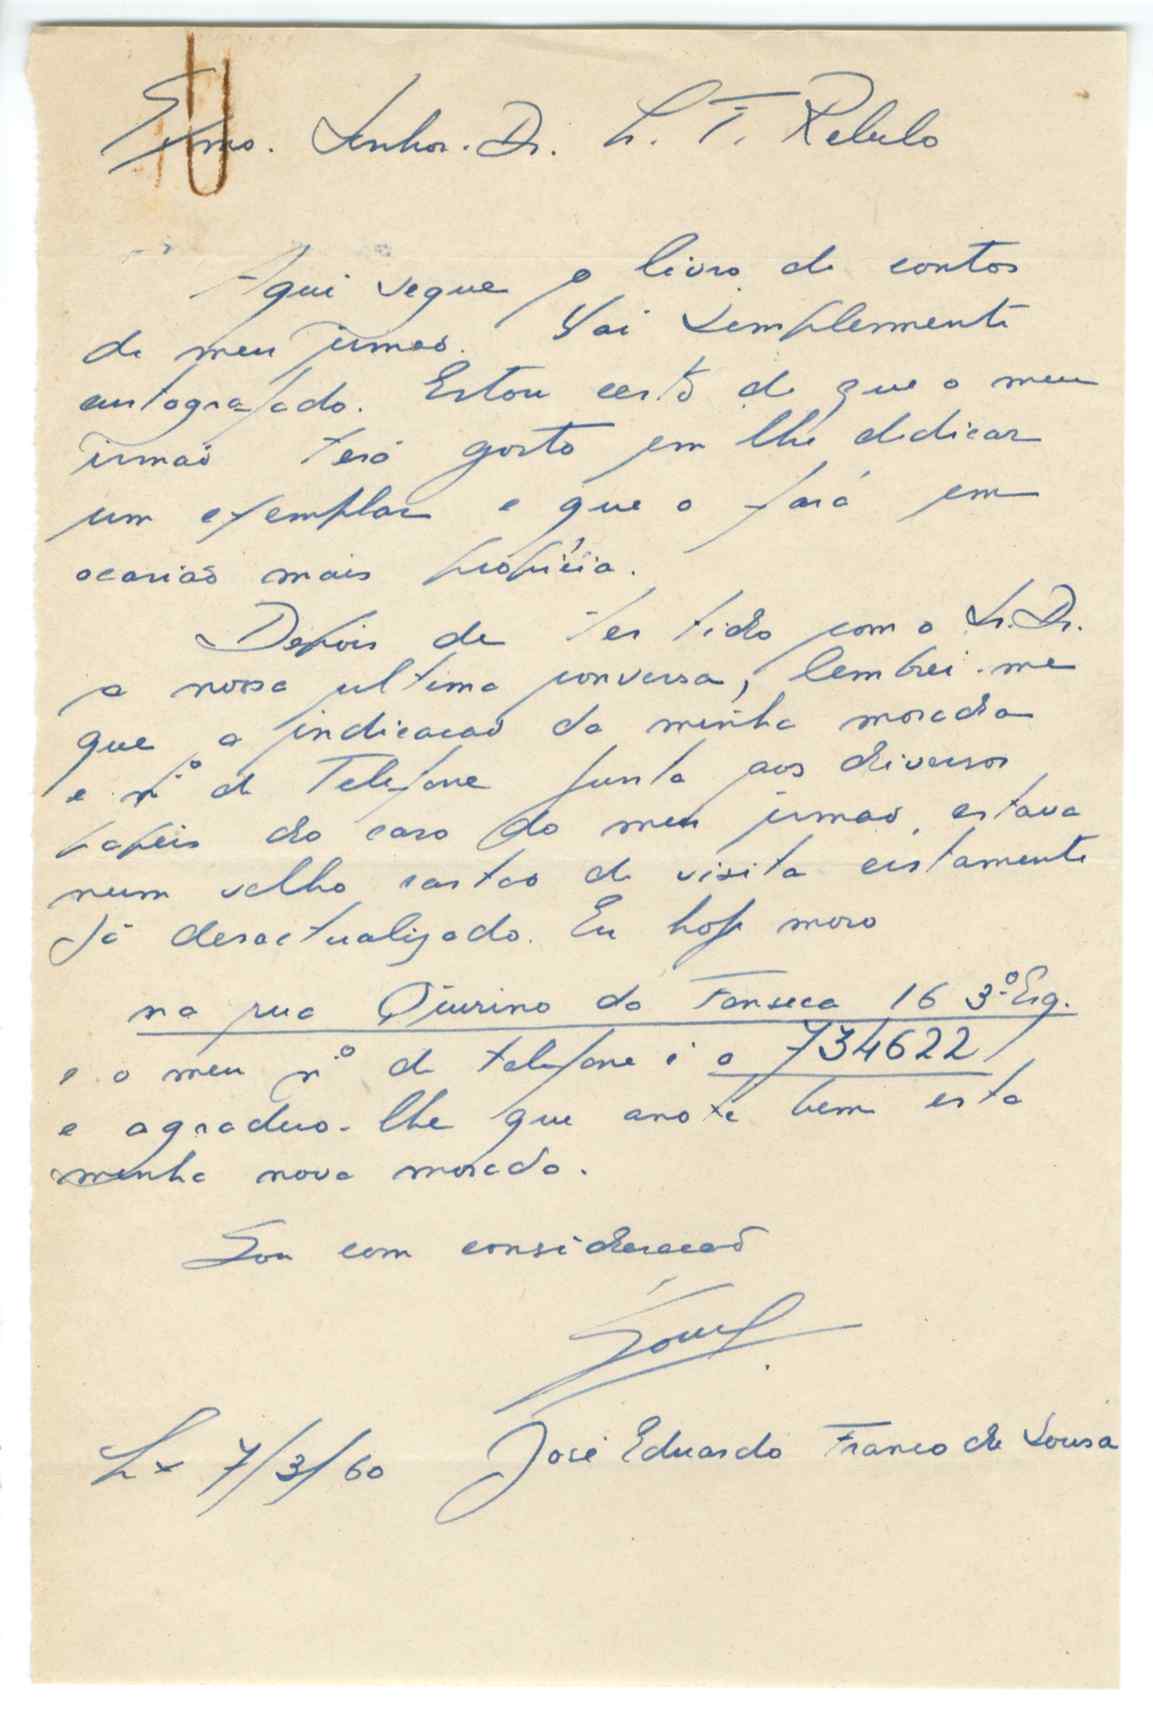 Exmo. Senhor. Dr. L. F. Rebelo
Aqui segue o livro de contos
de meu irmão. Vai simplesmente
autografado. Estou certo de que o meu
irmão terá gosto em lhe dedicar
um exemplar e que o fará em
ocasião mais propícia.
Depois de ter tido com o Sr. Dr.
a nossa ultima conversa, lembrei-me
que a indicação da minha morada
e n.º de Telefone junta aos diversos
papeis do caso do meu irmão, estava
num velho cartão de visita certamente
já desactualizado. Eu hoje moro
na rua Quirino da Fonseca 16 3.º Esq.
e o meu n.º de telefone é o 734622
e agradeço-lhe que anote bem esta
minha nova morada.
Sou com consideração
Sousa
Lx 7/3/60 José Eduardo Franco de Sousa